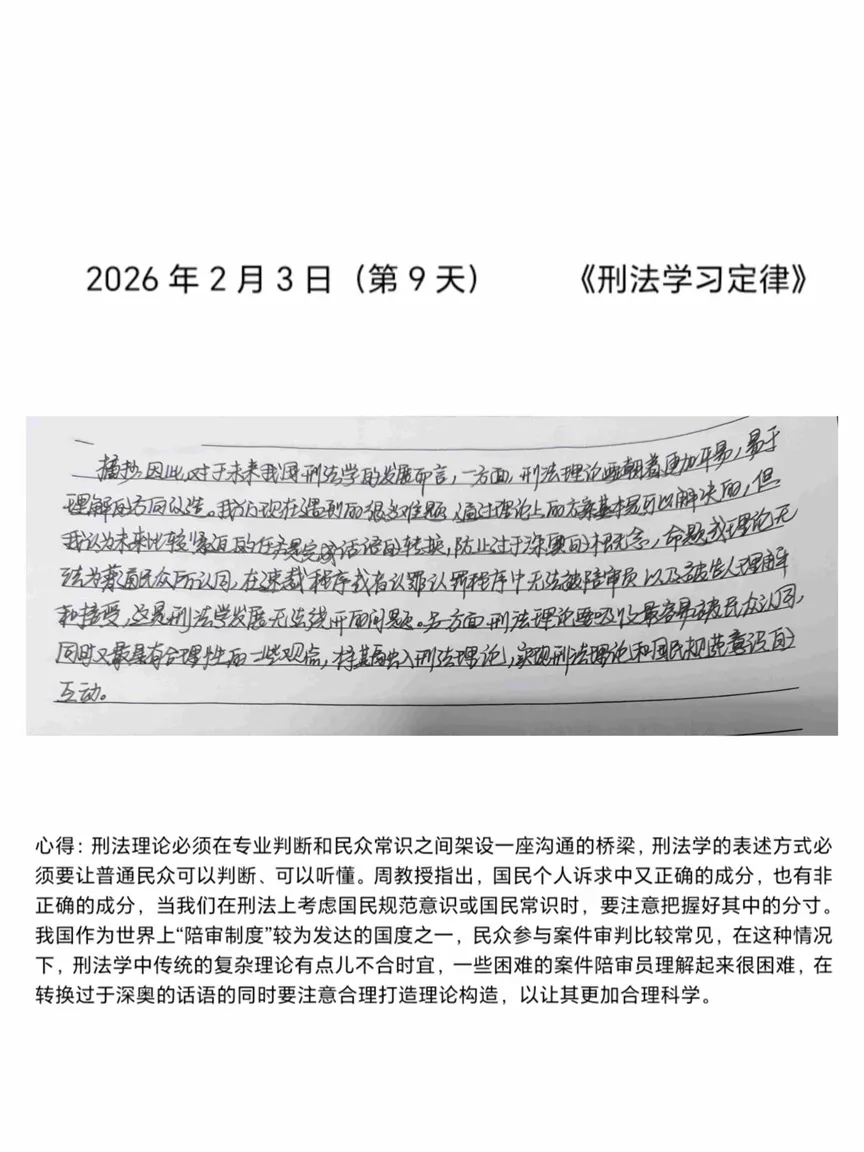 2026 年 2 月 3 日（第 9 天） 《刑法学习定律》
摘抄：因此，对于未来我国刑法学的发展而言，一方面，刑法理论要朝着更加平易，易于
理解的方向改造。我们现在遇到的很多难题，通过理论上的方案基本是可以解决的，但
我认为未来比较紧迫的任务是完成话语的转换，防止过于深奥的概念，命题或理论无
法为普通民众所认同，在速裁程序或者认罪认罪程序中无法被陪审员以及被告人理解
和接受，这是刑法学发展无法绕开的问题。另方面，刑法理论要吸收最容易被民众认同，
同时又最具有合理性的一些观点，将其融入刑法理论，实现刑法理论和国民规范意识的
互动。
心得：刑法理论必须在专业判断和民众常识之间架设一座沟通的桥梁，刑法学的表述方式必
须要让普通民众可以判断、可以听懂。周教授指出，国民个人诉求中又正确的成分，也有非
正确的成分，当我们在刑法上考虑国民规范意识或国民常识时，要注意把握好其中的分寸。
我国作为世界上“陪审制度”较为发达的国度之一，民众参与案件审判比较常见，在这种情况
下，刑法学中传统的复杂理论有点儿不合时宜，一些困难的案件陪审员理解起来很困难，在
转换过于深奥的话语的同时要注意合理打造理论构造，以让其更加合理科学。